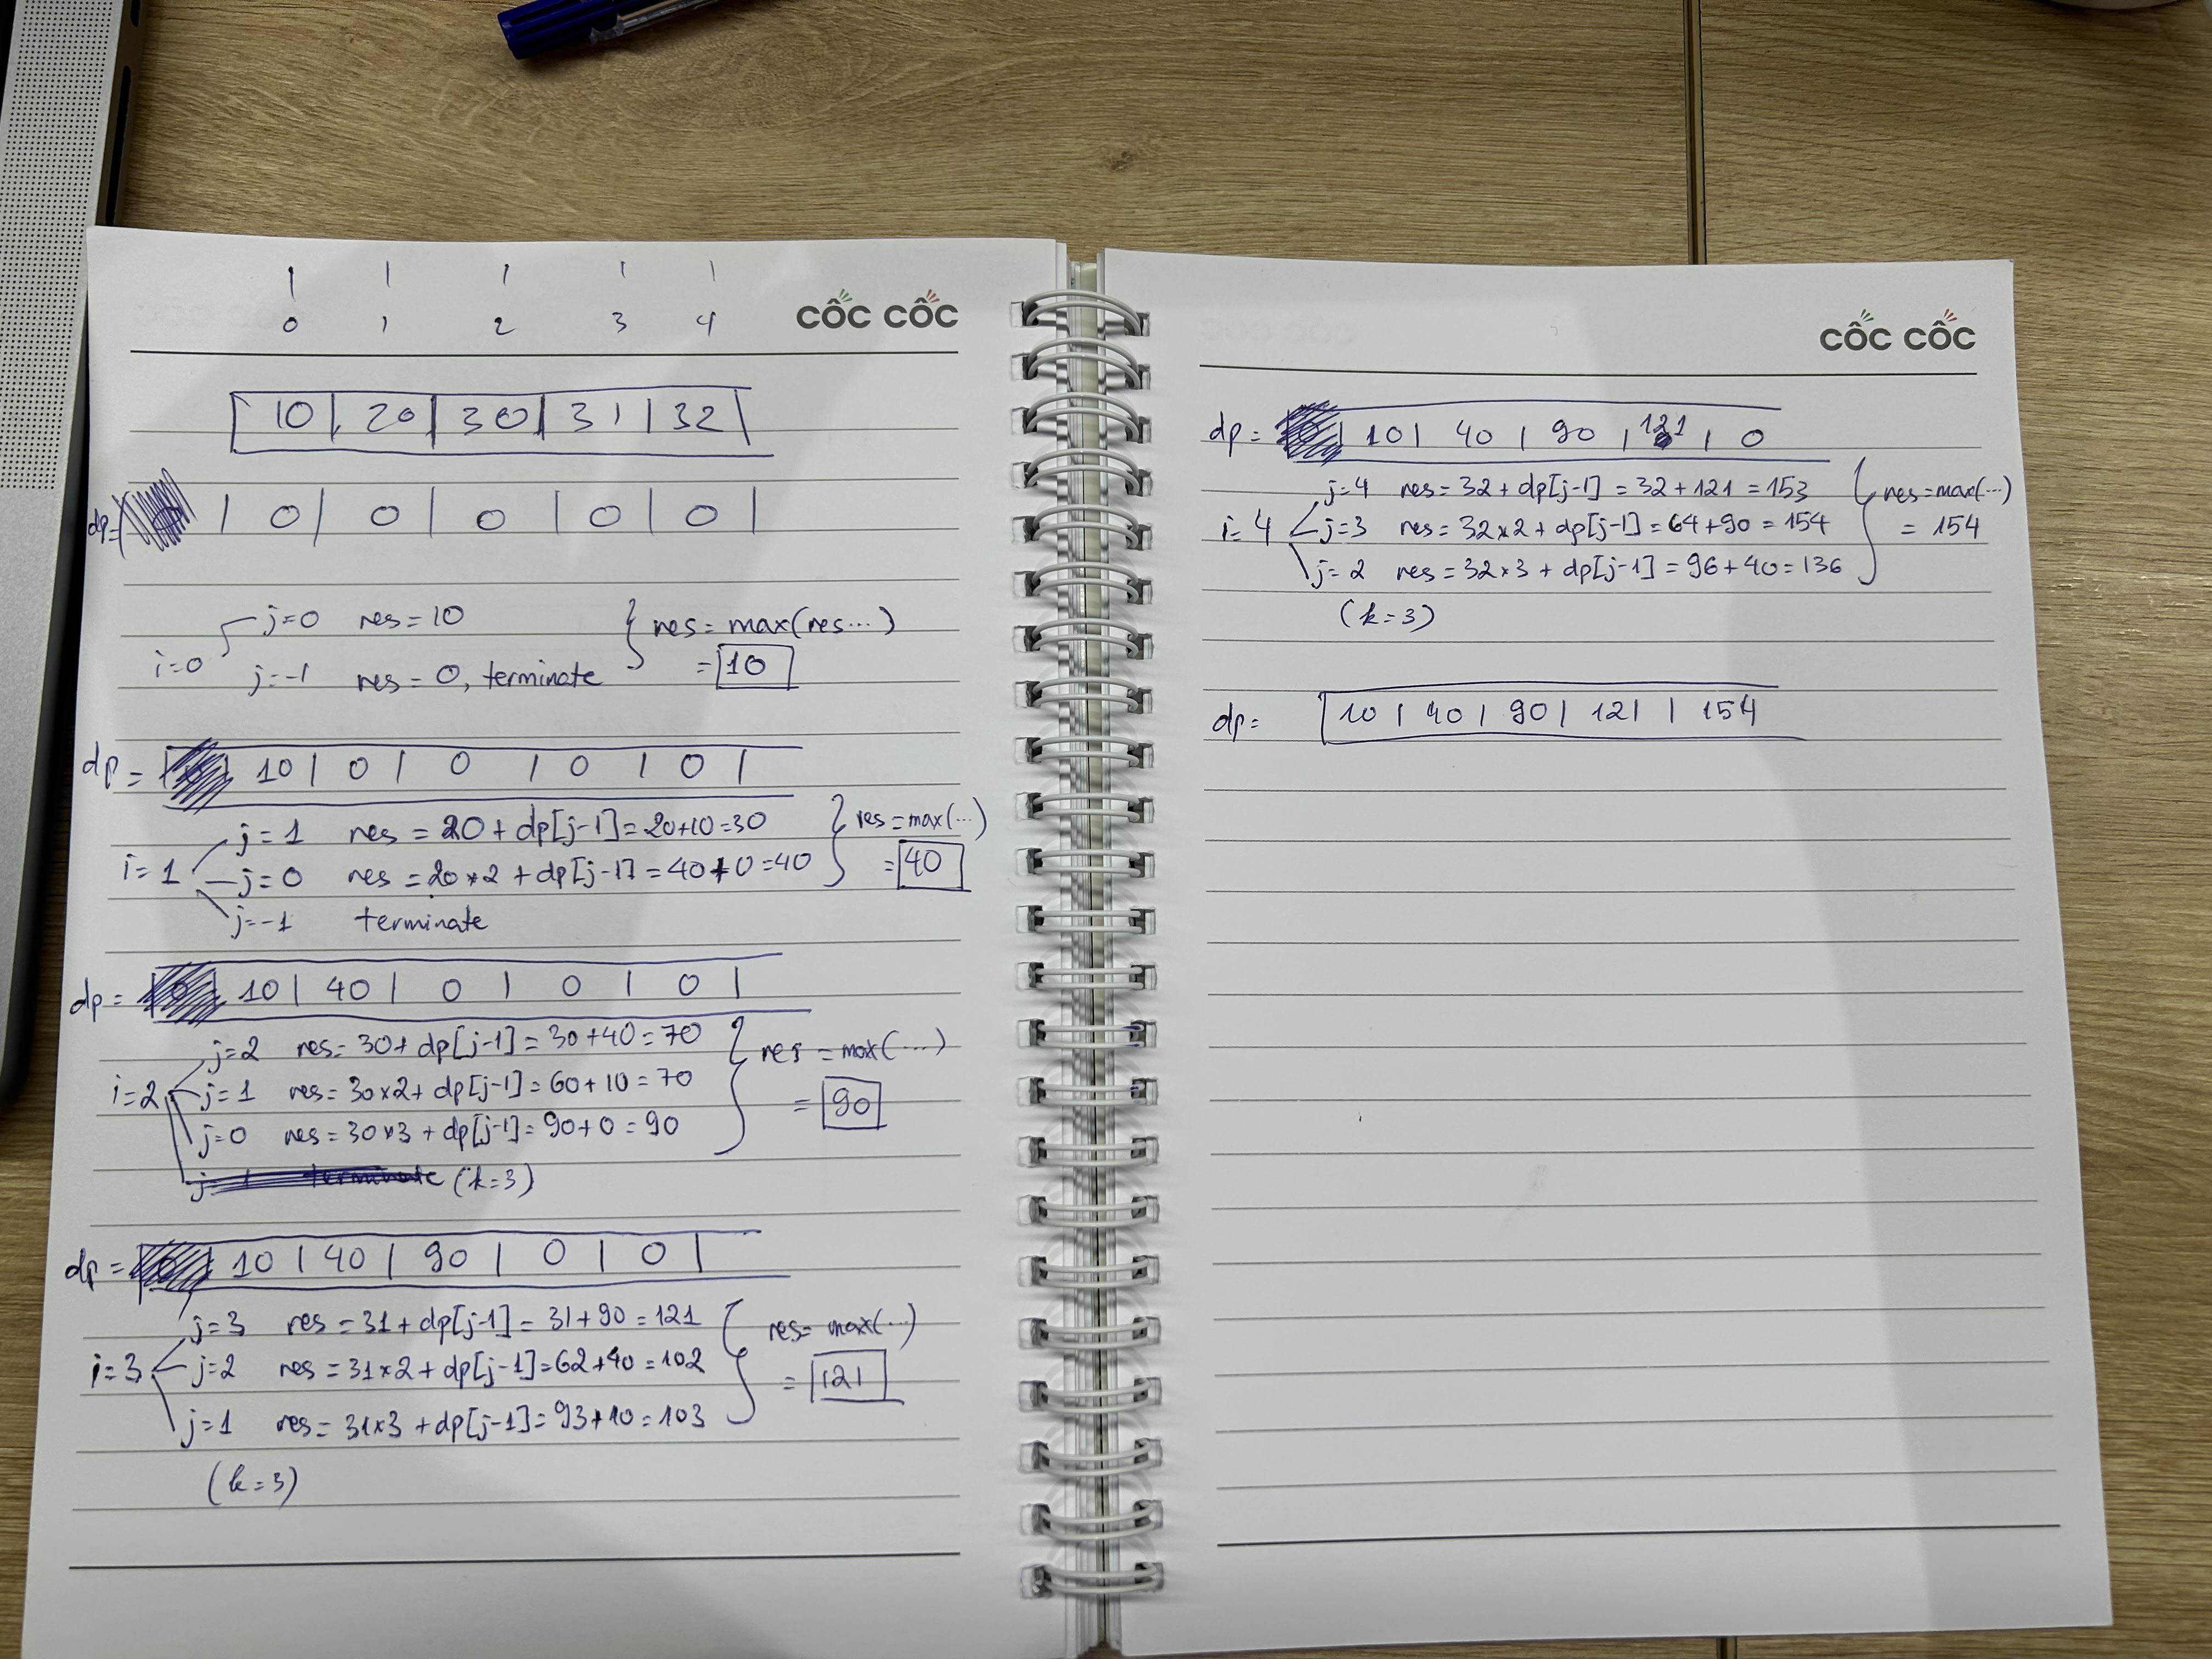 0 1 2 3 4
CỐC CỐC
10 | 20 | 30 | 31 | 32
dp= | 0 | 0 | 0 | 0 | 0 |
j=0 res=10
i=0
j=-1 res=0, terminate
res=max(res...)
=10
dp= 0 | 10 | 0 | 0 | 0 | 0 |
j=1 res=20+dp[j-1]=20+10=30
i=1 j=0 res=20*2+dp[j-1]=40+0=40
j=-1 terminate
res=max(...)
=40
dp= 0 | 10 | 40 | 0 | 0 | 0 |
j=2 res=30+dp[j-1]=30+40=70
i=2 j=1 res=30x2+dp[j-1]=60+10=70
j=0 res=30x3+dp[j-1]=90+0=90
j=-1 terminate (k=3)
res=max(...)
=90
dp= 0 | 10 | 40 | 90 | 0 | 0 |
j=3 res=31+dp[j-1]=31+90=121
i=3 j=2 res=31x2+dp[j-1]=62+40=102
j=1 res=31x3+dp[j-1]=93+10=103
(k=3)
res=max(...)
=121
CỐC CỐC
dp= 0 | 10 | 40 | 90 | 121 | 0
j=4 res=32+dp[j-1]=32+121=153
i=4 j=3 res=32x2+dp[j-1]=64+90=154
j=2 res=32x3+dp[j-1]=96+40=136
(k=3)
res=max(...)
=154
dp= | 10 | 40 | 90 | 121 | 154